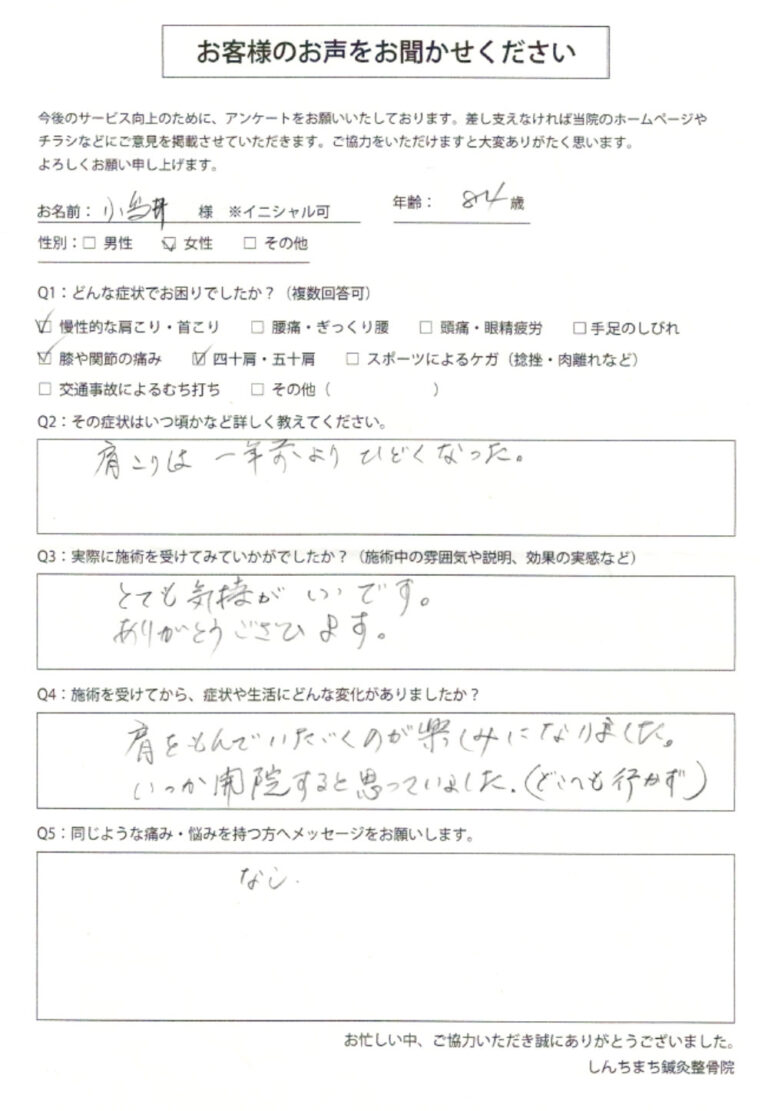 お客様のお声をお聞かせください
今後のサービス向上のために、アンケートをお願いいたしております。差し支えなければ当院のホームページや
チラシなどにご意見を掲載させていただきます。ご協力をいただけますと大変ありがたく思います。
よろしくお願い申し上げます。
お名前: 小 井 様 ※イニシャル可 年齢: 84 歳
性別:□ 男性 ☑ 女性 □ その他
Q1:どんな症状でお困りでしたか?(複数回答可)
☑ 慢性的な肩こり・首こり □ 腰痛・ぎっくり腰 □ 頭痛・眼精疲労 □ 手足のしびれ
☑ 膝や関節の痛み ☑ 四十肩・五十肩 □ スポーツによるケガ(捻挫・肉離れなど)
□ 交通事故によるむち打ち □ その他( )
Q2:その症状はいつ頃かなど詳しく教えてください。
肩こりは 一年前より ひどくなった。
Q3:実際に施術を受けてみていかがでしたか?(施術中の雰囲気や説明、効果の実感など)
とても気持が いいです。
ありがとうございます。
Q4:施術を受けてから、症状や生活にどんな変化がありましたか?
肩をもんでいただくのが楽しみになりました。
いつか開院すると思っていました.(どこへも行かず)
Q5:同じような痛み・悩みを持つ方へメッセージをお願いします。
なし.
お忙しい中、ご協力いただき誠にありがとうございました。
しんちまち鍼灸整骨院